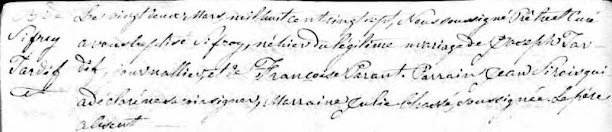 B. de Le vingt deux Mars mil huit cent cinq sept, Nous soussigné Prêtre et Curé
Sifroy avons baptisé Sifroy, né hier du légitime mariage de Joseph Tar-
Tardif dif, journallier, et de Françoise Parant. Parrain Jean Sirois qui
a déclaré ne savoir signer, Marraine Julie Chassé, soussignée. Le père
absent